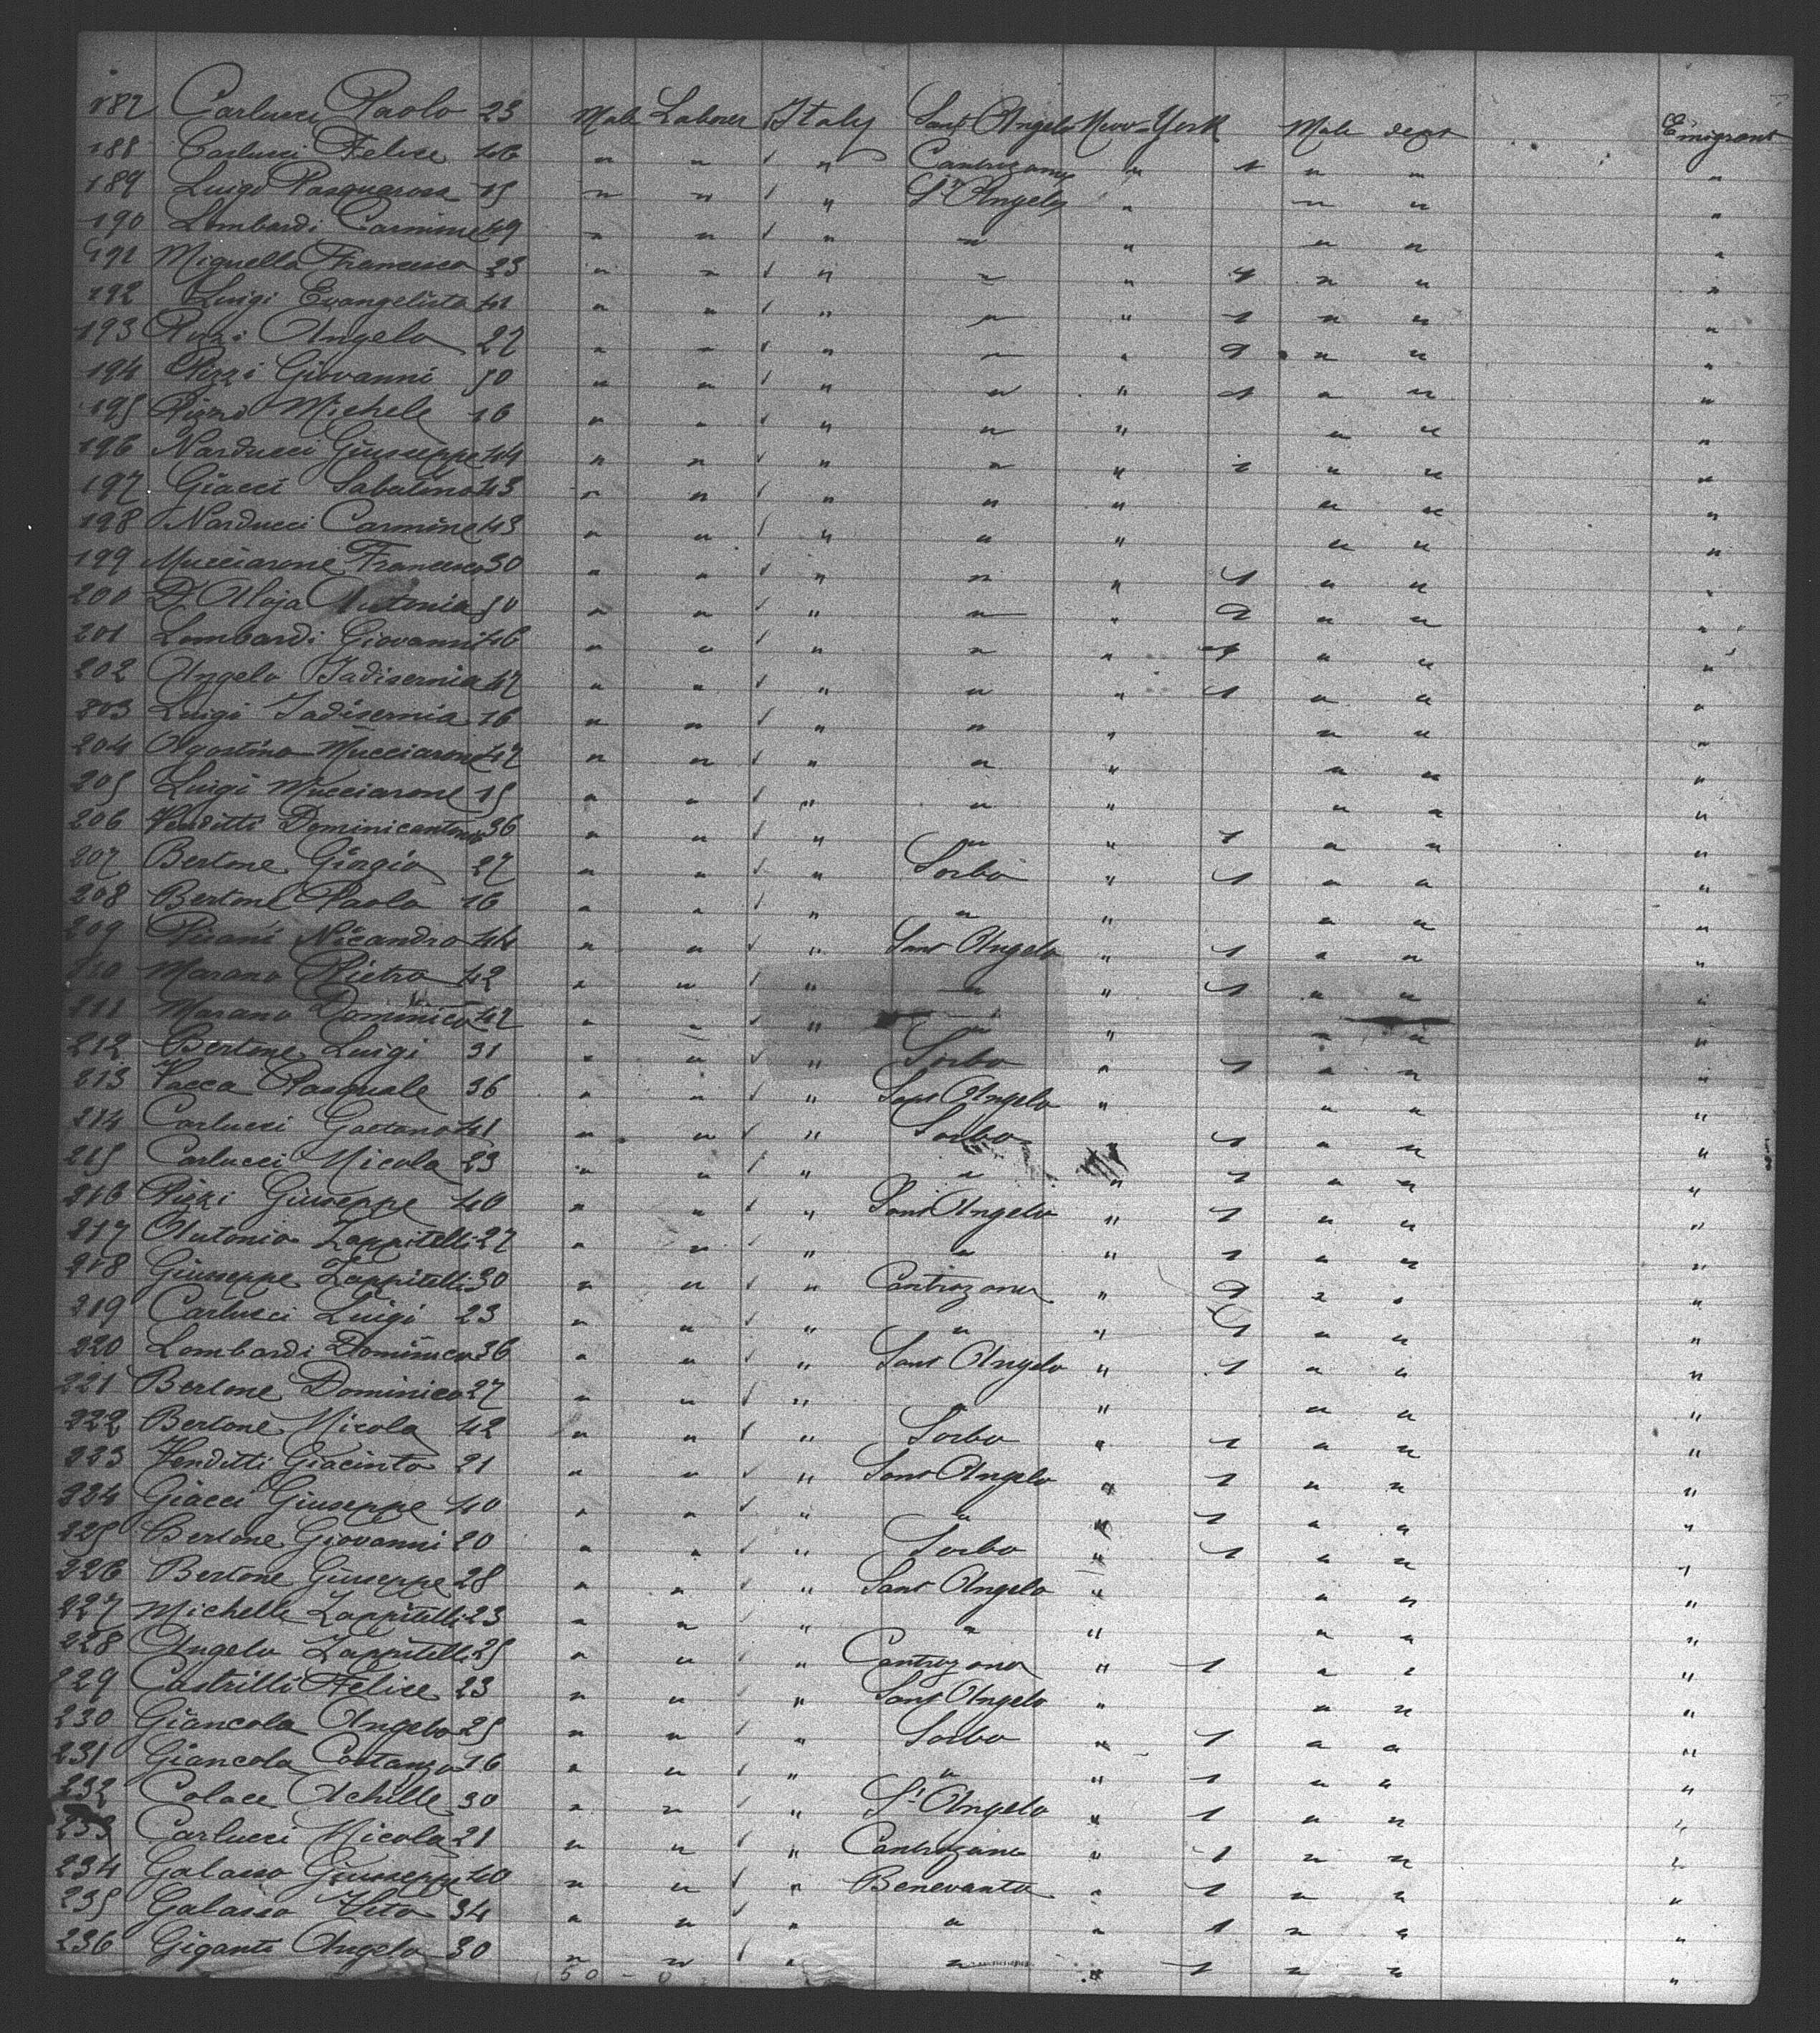 187 Carlucci Paolo 23 Male Laborer Italy Sant Angelo New-York Male dept Emigrant
188 Carlucci Felice 46 " " " Cantrezona " 1 " " "
189 Luigi Pasquarosa 15 " " " St Angelo " " " "
190 Lombardi Carmine 49 " " " " " " " "
191 Mignella Francesco 23 " " " " " 1 " " "
192 Luigi Evangelista 41 " " " " " 1 " " "
193 Rizzi Angelo 27 " " " " " 2 " " "
194 Rizzi Giovanni 50 " " " " " 1 " " "
195 Rizzi Michele 16 " " " " " " " "
196 Narducci Giuseppe 44 " " " " " 1 " " "
197 Giacci Sabatino 43 " " " " " " " "
198 Narducci Carmine 43 " " " " " " " "
199 Mucciarone Francesco 30 " " " " " 1 " " "
200 D'Aloja Antonia 50 " " " " " 2 " " "
201 Lombardi Giovanni 46 " " " " " 1 " " "
202 Angelo Iadisernia 47 " " " " " 1 " " "
203 Luigi Iadisernia 16 " " " " " " " "
204 Agostino Mucciarone 47 " " " " " " " "
205 Luigi Mucciarone 15 " " " " " " " "
206 Venditti Dominicantonio 36 " " " " " 1 " " "
207 Bertone Giorgio 27 " " " Sorbo " 1 " " "
208 Bertone Paolo 16 " " " " " " " "
209 Pisani Nicandro 44 " " " Sant Angelo " 1 " " "
210 Marano Pietro 42 " " " " " 1 " " "
211 Marano Dominico 42 " " " " " " " "
212 Bertone Luigi 31 " " " Sorbo " 1 " " "
213 Vacca Pasquale 36 " " " Sant Angelo " " " "
214 Carlucci Gaetano 41 " " " Sorbo 1 " " "
215 Carlucci Nicola 23 " " " " " 1 " " "
216 Rizzi Giuseppe 40 " " " Sant Angelo " 1 " " "
217 Antonio Zappitelli 27 " " " " " 1 " " "
218 Giuseppe Zappitelli 30 " " " Cantrozona " 2 " " "
219 Carlucci Luigi 23 " " " " " 1 " " "
220 Lombardi Dominico 36 " " " Sant Angelo " 1 " " "
221 Bertone Dominico 27 " " " " " " " "
222 Bertone Nicola 42 " " " Sorbo " 1 " " "
223 Venditti Giacinto 21 " " " Sant Angelo " 1 " " "
224 Giacci Giuseppe 40 " " " " " 1 " " "
225 Bertone Giovanni 20 " " " Sorbo " 1 " " "
226 Bertone Giuseppe 28 " " " Sant Angelo " " " "
227 Michele Zappitelli 23 " " " " " " " "
228 Angelo Zappitelli 25 " " " Cantrozona " 1 " " "
229 Castrilli Felice 23 " " " Sant Angelo " " " "
230 Giancola Angelo 25 " " " Sorbo " 1 " " "
231 Giancola Costanzo 16 " " " " " 1 " " "
232 Colace Achille 30 " " " St Angelo " 1 " " "
233 Carlucci Nicola 21 " " " Cantrozona " 1 " " "
234 Galasso Giuseppe 40 " " " Benevanto " 1 " " "
235 Galasso Vito 34 " " " " " 1 " " "
236 Gigante Angelo 30 " " " " " 1 " " "
50 - 0